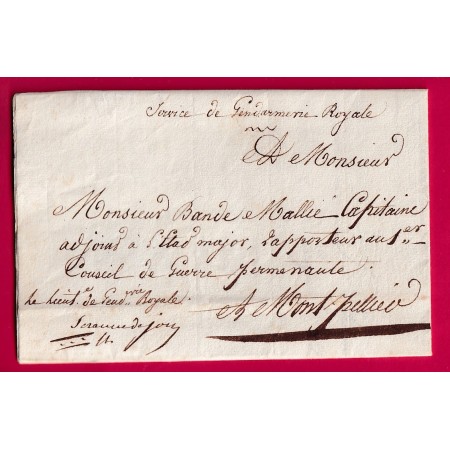 Service de Gendarmerie Royale
A Monsieur
Monsieur Bande Mallié Capitaine
adjoint à l'Etad major, rapporteur au 1er
Conseil de Guerre permenante.
Le Lieut. de Gend.rie Royale.
A Montpellier